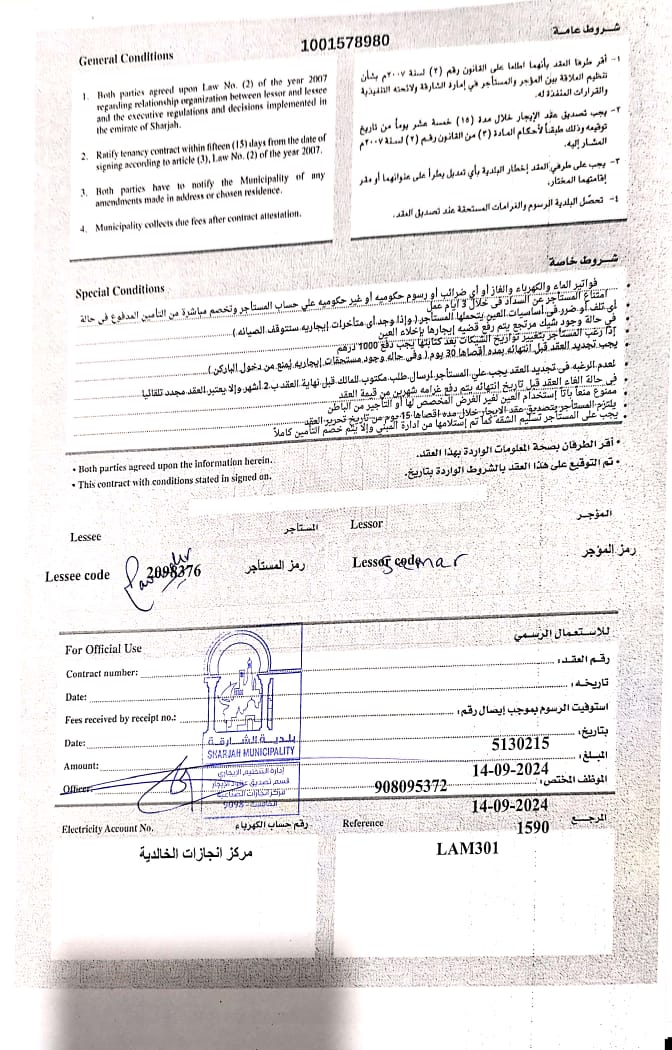 1001578980
General Conditions
شروط عامة
1. Both parties agreed upon Law No. (2) of the year 2007
regarding relationship organization between lessor and lessee
and the executive regulations and decisions implemented in
the emirate of Sharjah.
2. Ratify tenancy contract within fifteen (15) days from the date of
signing according to article (3), Law No. (2) of the year 2007.
3. Both parties have to notify the Municipality of any
amendments made in address or chosen residence.
4. Municipality collects due fees after contract attestation.
١- أقر طرفا العقد بأنهما اطلعا على القانون رقم (٢) لسنة ٢٠٠٧م بشأن
تنظيم العلاقة بين المؤجر والمستأجر في إمارة الشارقة ولائحته التنفيذية
والقرارات المنفذة له.
٢- يجب تصديق عقد الإيجار خلال مدة (١٥) خمسة عشر يوماً من تاريخ
توقيعه وذلك طبقاً لأحكام المادة (٣) من القانون رقم (٢) لسنة ٢٠٠٧م
المشار إليه.
٣- يجب على طرفي العقد إخطار البلدية بأي تعديل يطرأ على عنوانهما أو مقر
إقامتهما المختار.
٤- تحصّل البلدية الرسوم والغرامات المستحقة عند تصديق العقد.
Special Conditions
شروط خاصة
فواتير الماء والكهرباء والغاز أو أي ضرائب أو رسوم حكوميه أو غير حكوميه علي حساب المستأجر وتخصم مباشرة من التأمين المدفوع في حالة
امتناع المستأجر عن السداد في خلال 3 أيام عمل
أي تلف أو ضرر في أساسيات العين يتحملها المستأجر ( وإذا وجد أى متأخرات إيجاريه ستتوقف الصيانه )
في حالة وجود شيك مرتجع يتم رفع قضيه إيجارها بإخلاء العين
إذا رغب المستأجر بتغيير تواريخ الشيكات بعد كتابتها يجب دفع 1000 درهم
يجب تجديد العقد قبل انتهائه بمده أقصاها 30 يوم ( وفي حاله وجود مستحقات إيجاريه يُمنع من دخول الباركن )
لعدم الرغبه في تجديد العقد يجب علي المستأجر إرسال طلب مكتوب للمالك قبل نهاية العقد ب 2 أشهر وإلا يعتبر العقد مجدد تلقائيا
في حالة الغاء العقد قبل تاريخ انتهائه يتم دفع غرامه شهرين من قيمة العقد
ممنوع منعاً باتاً إستخدام العين لغير الغرض المخصص لها أو التأجير من الباطن
يلتزم المستأجر بتصديق عقد الإيجار خلال مده اقصاها 15 يوم من تاريخ تحرير العقد
يجب على المستأجر تسليم الشقة كما تم إستلامها من ادارة المبنى وإلا يتم خصم التأمين كاملاً
• Both parties agreed upon the information herein.
• أقر الطرفان بصحة المعلومات الواردة بهذا العقد.
• This contract with conditions stated in signed on.
• تم التوقيع على هذا العقد بالشروط الواردة بتاريخ.
Lessee المستأجر Lessor المؤجر
Lessee code 2098376 رمز المستأجر Lessor code رمز المؤجر
For Official Use للاستعمال الرسمي
Contract number: رقم العقد:
Date: تاريخه:
Fees received by receipt no.: استوفيت الرسوم بموجب إيصال رقم:
Date: 5130215 بتاريخ:
Amount: 14-09-2024 المبلغ:
Officer: 908095372 الموظف المختص:
14-09-2024
بلدية الشارقة
SHARJAH MUNICIPALITY
إدارة التنظيم الإيجاري
9098
Electricity Account No. رقم حساب الكهرباء Reference 1590 المرجع
مركز انجازات الخالدية
LAM301